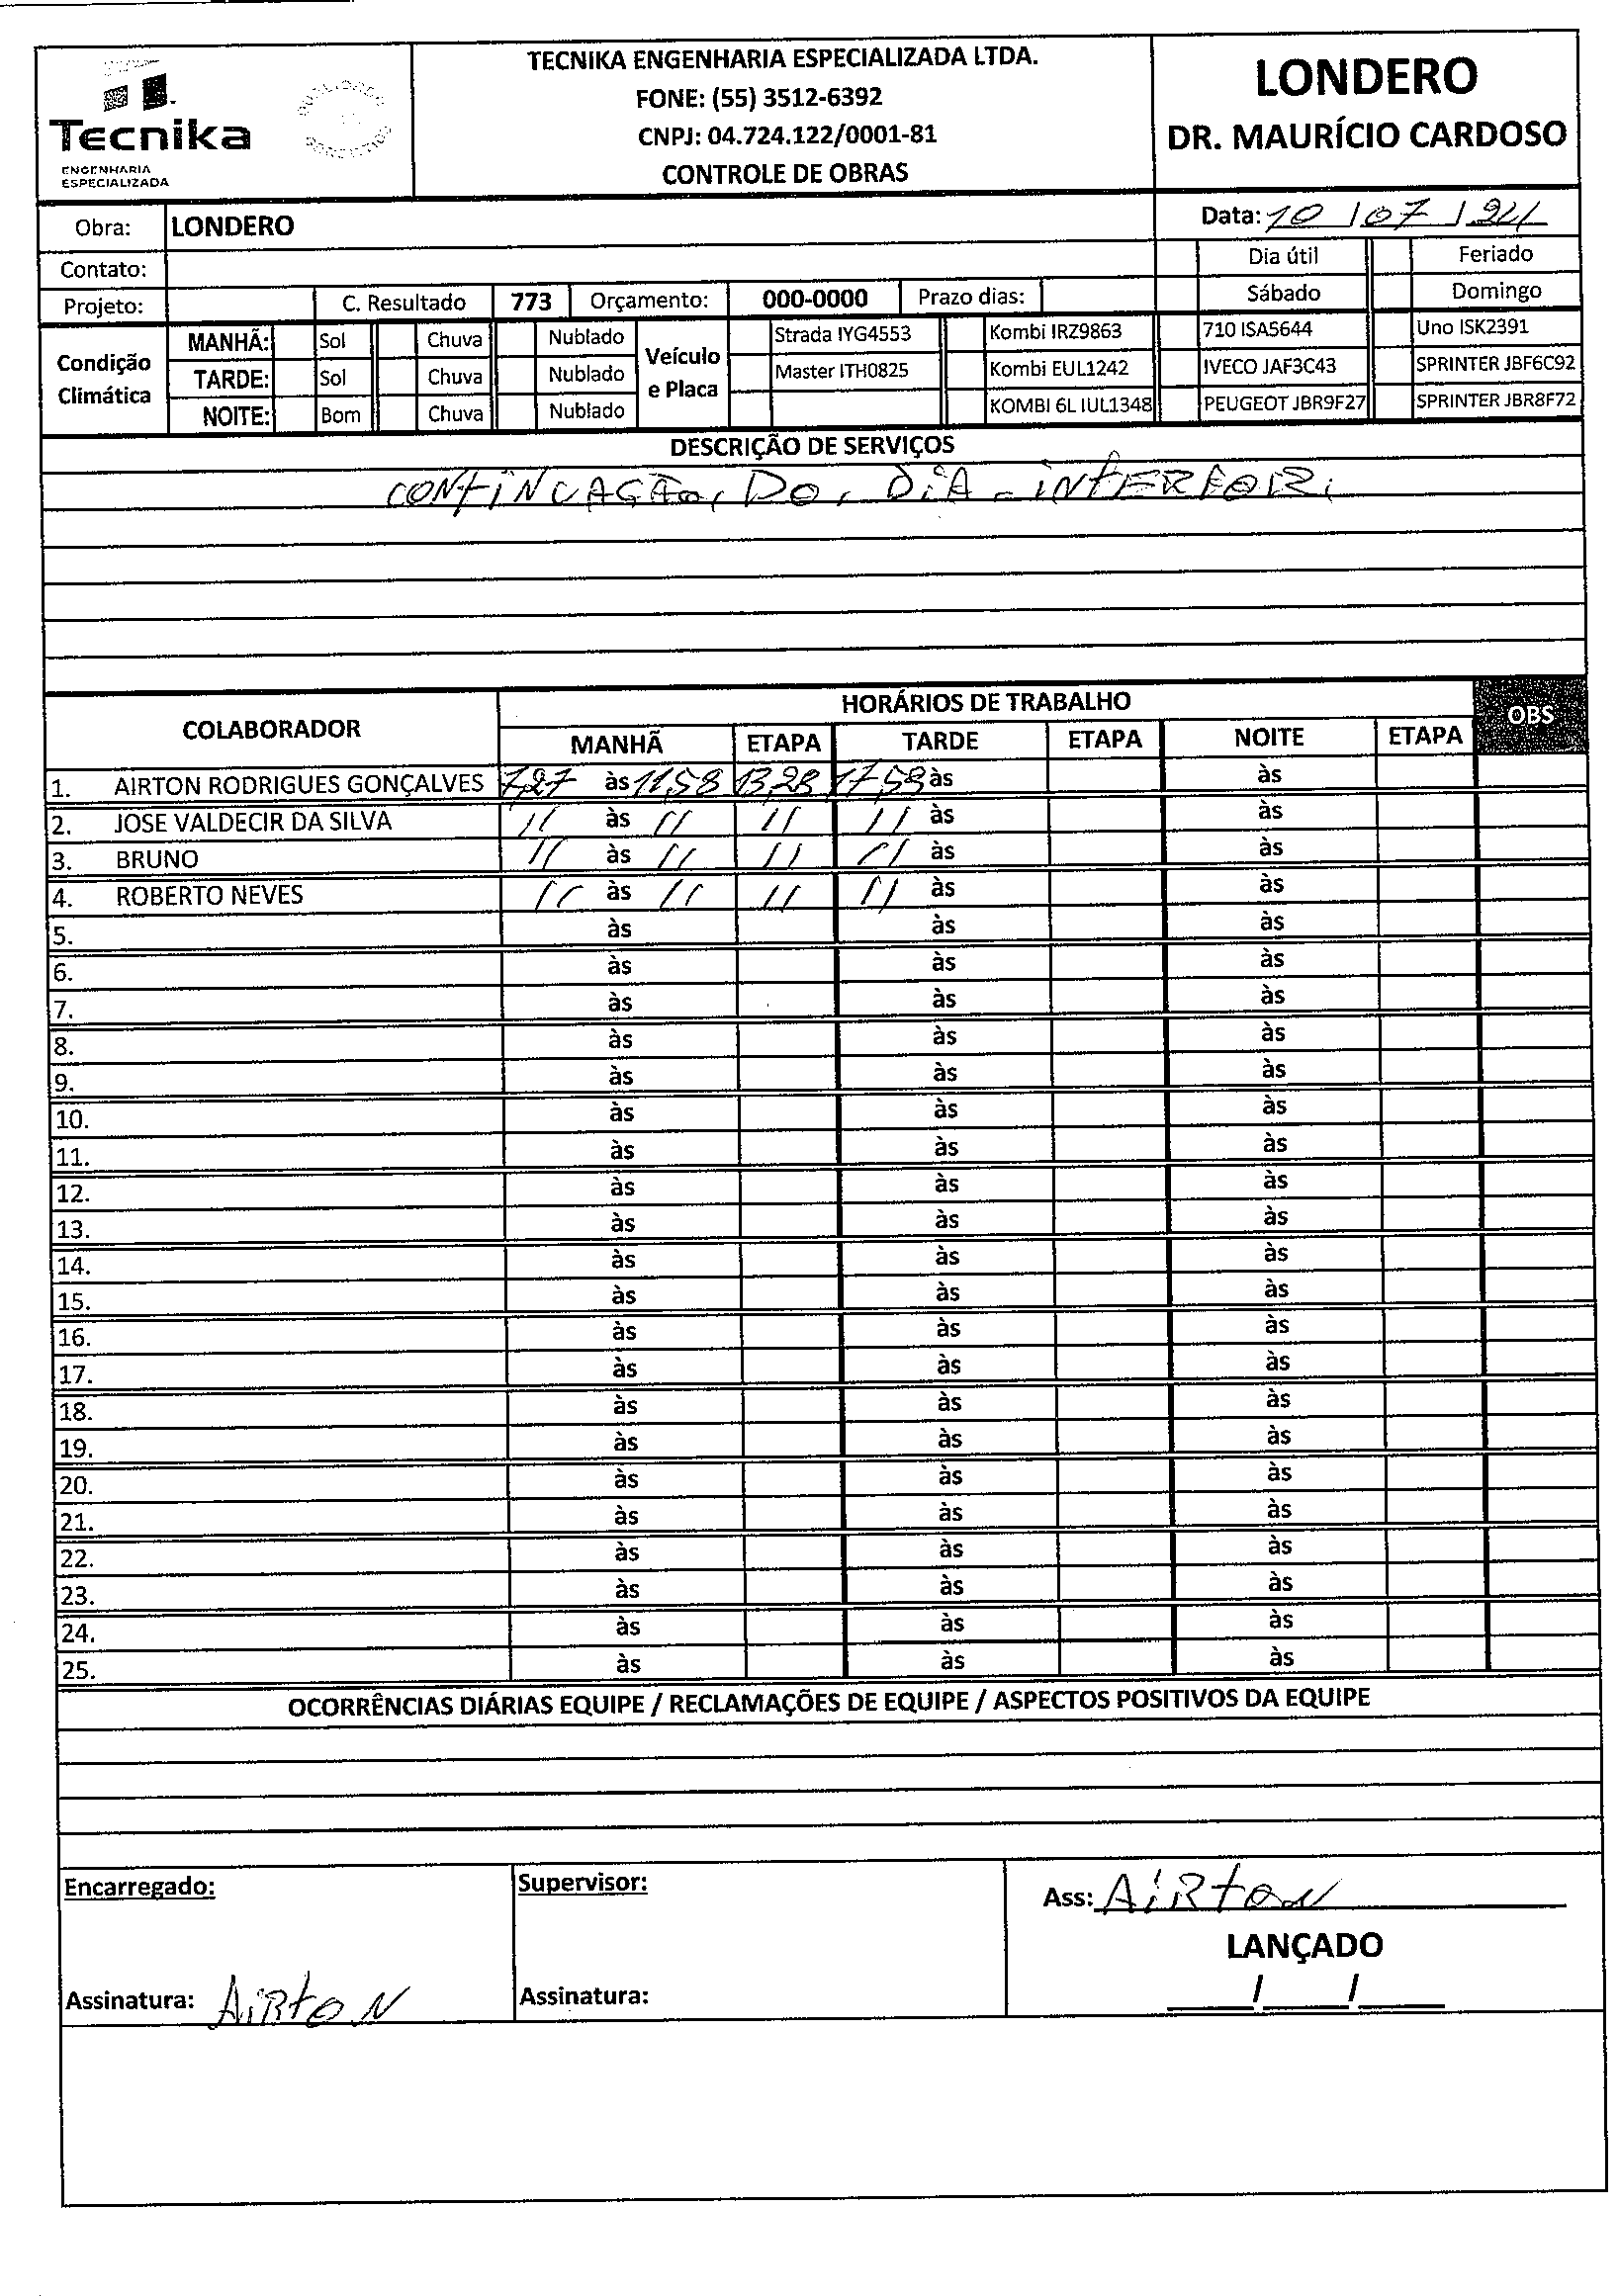 TECNIKA ENGENHARIA ESPECIALIZADA LTDA.
FONE: (55) 3512-6392
CNPJ: 04.724.122/0001-81
CONTROLE DE OBRAS
Tecnika
ENGENHARIA
ESPECIALIZADA
LONDERO
DR. MAURÍCIO CARDOSO
Obra: LONDERO
Data: 10/07/24
Contato:
Dia útil Feriado
Projeto: C. Resultado 773 Orçamento: 000-0000 Prazo dias:
Sábado Domingo
Condição Climática
MANHÃ: Sol Chuva Nublado
TARDE: Sol Chuva Nublado
NOITE: Bom Chuva Nublado
Veículo e Placa
Strada IYG4553 Kombi IRZ9863 710 ISA5644 Uno ISK2391
Master ITH0825 Kombi EUL1242 IVECO JAF3C43 SPRINTER JBF6C92
KOMBI 6L IUL1348 PEUGEOT JBR9F27 SPRINTER JBR8F72
DESCRIÇÃO DE SERVIÇOS
CONTINUAÇÃO, DO, DIA - INTERIOR,
COLABORADOR HORÁRIOS DE TRABALHO OBS
MANHÃ ETAPA TARDE ETAPA NOITE ETAPA
1. AIRTON RODRIGUES GONÇALVES 7,27 às 11,58 13,28 17,58 às às
2. JOSE VALDECIR DA SILVA 11 às 11 11 11 às às
3. BRUNO 11 às 11 11 11 às às
4. ROBERTO NEVES 11 às 11 11 11 às às
5. às às às
6. às às às
7. às às às
8. às às às
9. às às às
10. às às às
11. às às às
12. às às às
13. às às às
14. às às às
15. às às às
16. às às às
17. às às às
18. às às às
19. às às às
20. às às às
21. às às às
22. às às às
23. às às às
24. às às às
25. às às às
OCORRÊNCIAS DIÁRIAS EQUIPE / RECLAMAÇÕES DE EQUIPE / ASPECTOS POSITIVOS DA EQUIPE
Encarregado:
Assinatura: AIRTON
Supervisor:
Assinatura:
Ass: AIRTON
LANÇADO
___/___/___